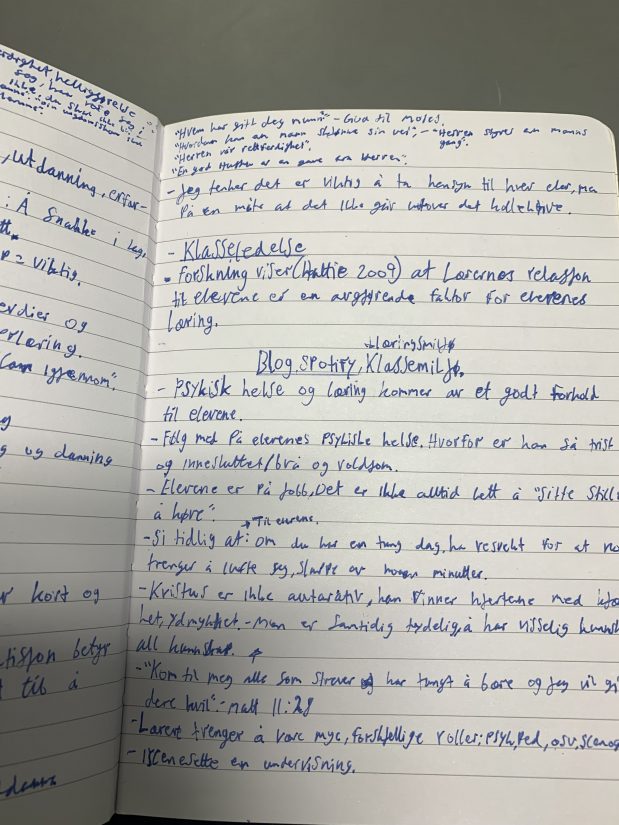 rdighet, helliggjørelse
seg, han
ikke, du skal ikke bli i
, utdanning, erfar-
: Å snakke i lag,
P = Viktig.
erdier og
erlæring.
igjennom".
g
g og danning
r kort og
betyr
t til å
"Hvem har gitt deg munn" - Gud til Moses.
"Hvordan kan en mann sin vei", - "Herren styrer en manns
gang".
"Herren vår rettferdighet".
"En god er en gave av Herren".
- Jeg tenker det er viktig å ta hensyn til hver elev, men
på en måte at det ikke går utover det kollektive.
- Klasseledelse
- Forskning viser (Hattie 2009) at Lærernes relasjon
til elevene er en avgjørende faktor for elevenes
læring.
+læringsmiljø
Blog, spotify, Klassemiljø.
- Psykisk helse og læring kommer av et godt forhold
til elevene.
- Følg med på elevenes psykiske helse. Hvorfor er han så trist
og innesluttet/brå og voldsom.
- Elevene er på jobb, Det er ikke alltid lett å "sitte stille
å høre".
→ "Til elevene.
- Si tidlig at: om du har en tung dag, ha respekt for at no
trenger å lufte seg, slappe av noen minutter.
- Kristus er ikke autoritær, han vinner hjertene med
het, ydmykhet. - Men er samtidig tydelig, å har visselig kunnsk
all kunnskap.
- "Kom til meg alle som strever og har tungt å bære og jeg vil gi
dere hvil" - matt 11:28
- Lærer trenger å være mye, forskjellige roller; Psyk, Ped, osv, scenog
- iscenesette en undervisning.